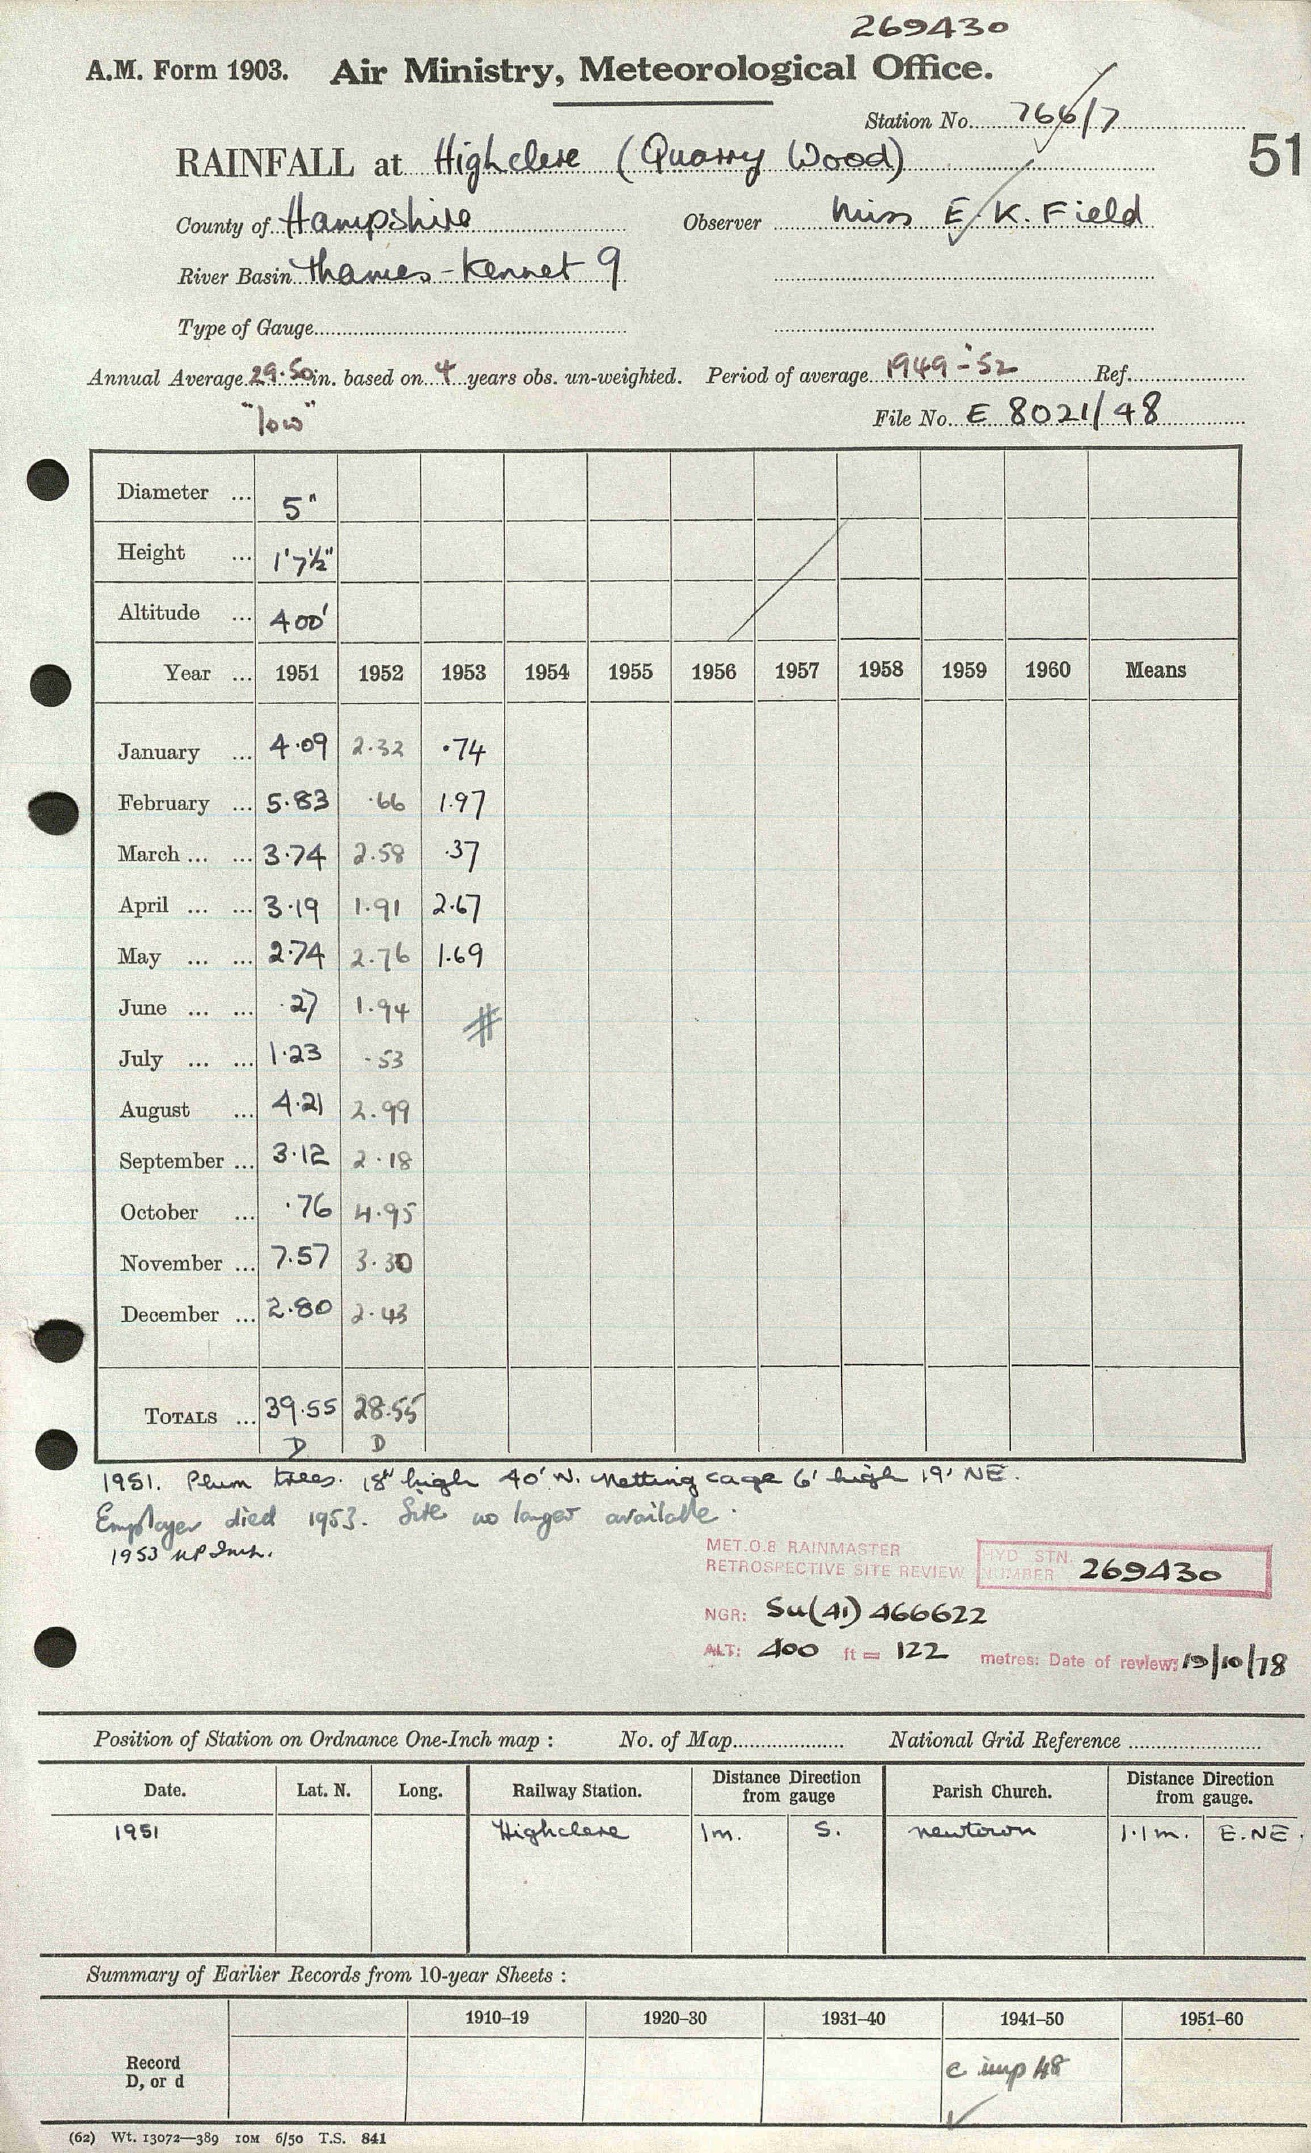 269430
A.M. Form 1903. Air Ministry, Meteorological Office.
Station No. 766/7
51
RAINFALL at Highclere (Quarry Wood)
County of Hampshire Observer Miss E. K. Field
River Basin Thames-Kennet 9
Type of Gauge
Annual Average 29.50 in. based on 4 years obs. un-weighted. Period of average 1949-'52 Ref.
"low"
File No. E 8021/48
Diameter ... 5"
Height ... 1'7½"
Altitude ... 400'
Year ... 1951 1952 1953 1954 1955 1956 1957 1958 1959 1960 Means
January ... 4.09 2.32 .74
February ... 5.83 .66 1.97
March ... ... 3.74 2.58 .37
April ... ... 3.19 1.91 2.67
May ... ... 2.74 2.76 1.69
June ... ... .27 1.94 #
July ... ... 1.23 .53
August ... 4.21 2.99
September ... 3.12 2.18
October ... .76 4.95
November ... 7.57 3.30
December ... 2.80 2.43
TOTALS ... 39.55 28.55
D D
1951. Plum trees. 18" high 40' N. Netting cage 6' high 19' NE.
Employer died 1953. Site no longer available.
1953
MET.O.8 RAINMASTER
RETROSPECTIVE SITE REVIEW
HYD STN. NUMBER 269430
NGR: SU(41) 466622
ALT: 400 ft = 122 metres: Date of review: 19/10/78
Position of Station on Ordnance One-Inch map : No. of Map National Grid Reference
Date. Lat. N. Long. Railway Station. Distance Direction from gauge Parish Church. Distance Direction from gauge.
1951 Highclere 1m. S. Newtown 1.1m. E.NE.
Summary of Earlier Records from 10-year Sheets :
1910–19 1920–30 1931–40 1941–50 1951–60
Record
D, or d
c imp 48
(62) Wt. 13072—389 10M 6/50 T.S. 841